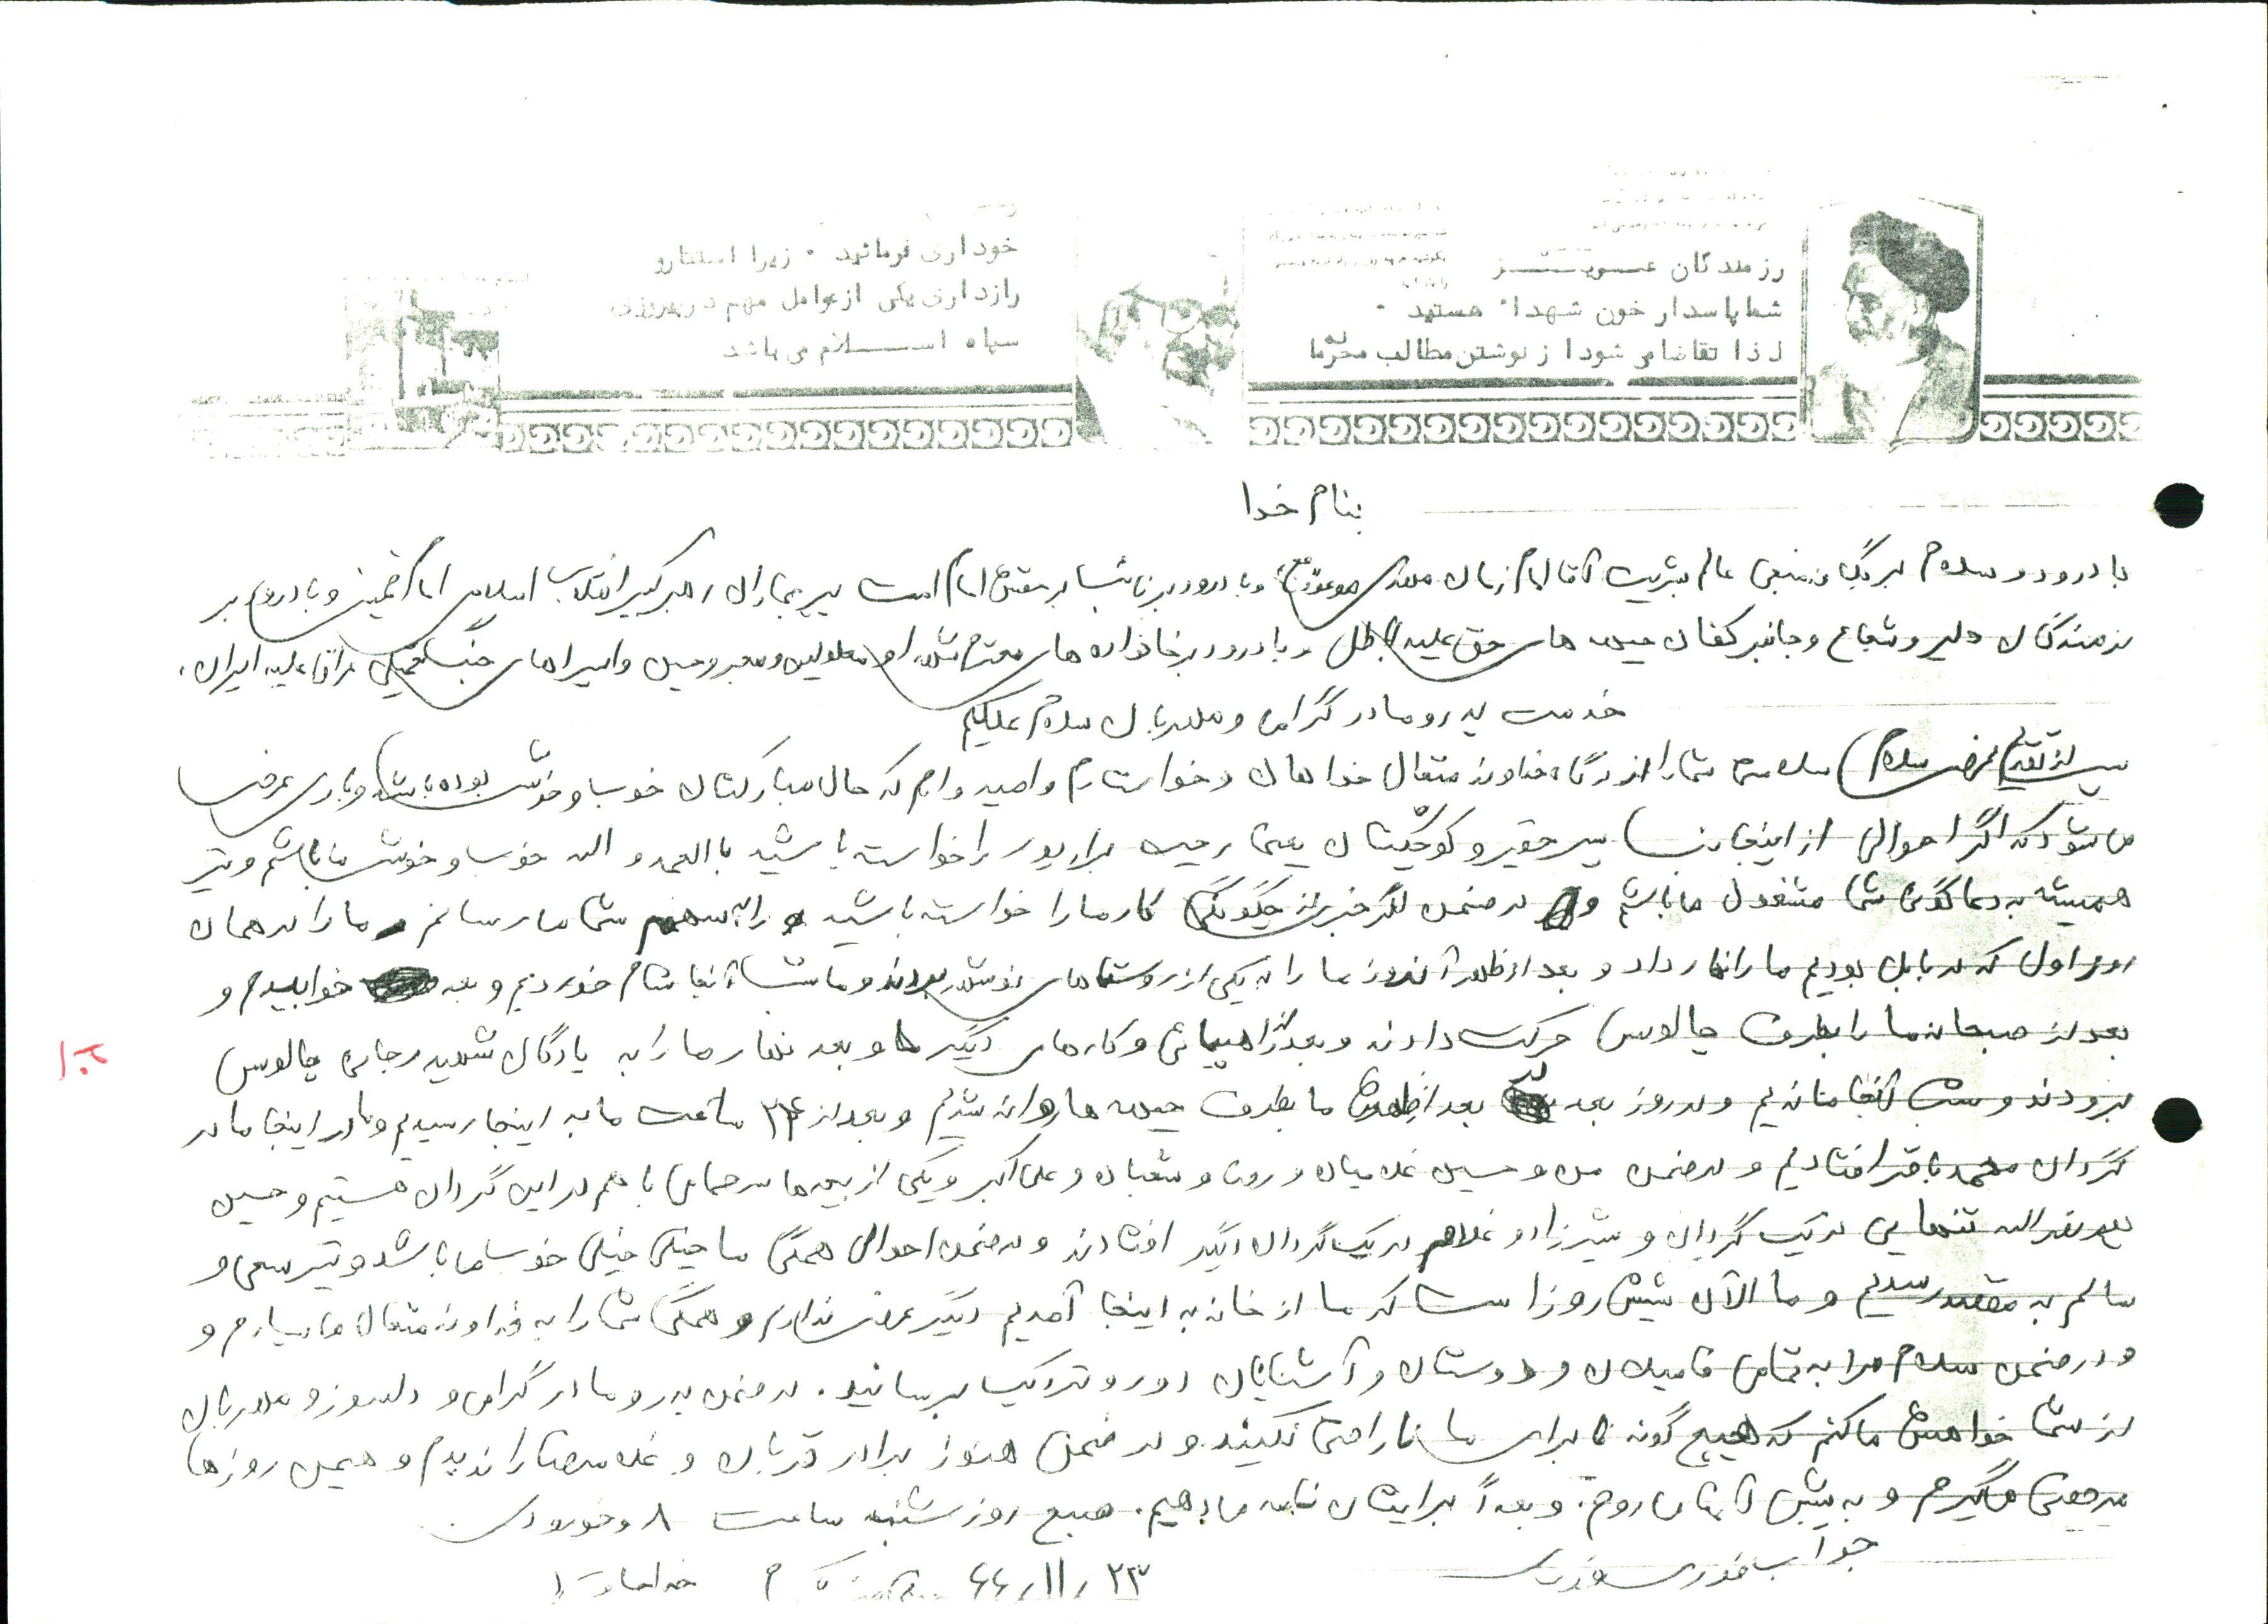 رزمندگان عــویــــز
شما پاسدار خون شهداء هستید .
لذا تقاضا می شود از نوشتن مطالب محرمانه
خودداری فرمائید . زیرا استتار و
رازداری یکی از عوامل مهم در پیروزی
سپاه اســــلام می باشد
بنام خدا
با درود و سلام بر یگانه منجی عالم بشریت آقا امام زمان مهدی موعود (عج) و با درود بر نائب بر حقش امام امت پیر جماران رهبر کبیر انقلاب اسلامی امام خمینی و با درود بر
رزمندگان دلیر و شجاع و جانبر کفان جبهه های حق علیه باطل و با درود بر خانواده های محترم شهدا و معلولین و مجروحین و اسرا های جنگ تحمیلی عراق علیه ایران.
خدمت پدر و مادر گرامی و مهربان سلام علیکم
پس از تقدیم عرض سلام سلامتی شما را از درگاه خداوند متعال خواهان و خواستارم و امید وارم که حال مبارکتان خوب و خوش بوده باشد و باری عرض
می شود که اگر احوالی از اینجانب پسر حقیر و کوچکتان یعنی رحیم برارپور را خواسته باشید باالحمد و اله خوب و خوش می باشم و نیز
همیشه به دعاگوئی شما مشغول می باشم و در ضمن اگر خبر از چگونگی کار ما را خواسته باشید و را به سمع شما می رسانم ما را در همان
روز اول که در بابل بودیم ما را نهار داد و بعد از ظهر آنروز ما را به یکی از روستاهای نوشهر بردند و ما شب آنجا شام خوردیم و بعد خوابیدیم و
بعد از صبحانه ما را بطرف چالوس حرکت دادند و بعد از راهپیمائی و کارهای دیگر و بعد نهار ما را به پادگان شهید رجائی چالوس
بردند و شب آنجا ماندیم و در روز بعد بعد از ظهر ما بطرف جبهه ها روانه شدیم و بعد از ۲۴ ساعت ما به اینجا رسیدیم و در اینجا ما در
گردان محمد باقر افتادیم و در ضمن من و حسین غلامیان و و شعبان و علی اکبر و یکی از بچه ها با هم در این گردان هستیم و حسین
تنهایی در یک گردان و شیرزاد و غلام در یک گردان دیگر افتادند و در ضمن احوال همگی ما خیلی خیلی خوب می باشد و نیز و
سالم به مقصد رسیدیم و ما الآن شش روز است که ما از خانه به اینجا آمدیم دیگر عرضی ندارم و همگی شما را به خداوند متعال می سپارم و
و در ضمن سلام مرا به تمامی فامیلان و دوستان و آشنایان دور و نزدیک برسانید. در ضمن پدر و مادر گرامی و دلسوز و مهربان
از شما خواهش می کنم که هیچ گونه برای ما ناراحتی نکنید و در ضمن هنوز برادر قربان و غلامرضا را ندیدم و همین روزها
مرخصی می گیرم و به پیش آنها می روم. و بعداً برایتان نامه می دهیم. صبح روز شنبه ساعت ۸
جواب فوری فوری
۲۳ / ۱۱ / ۶۴
۱۰۲